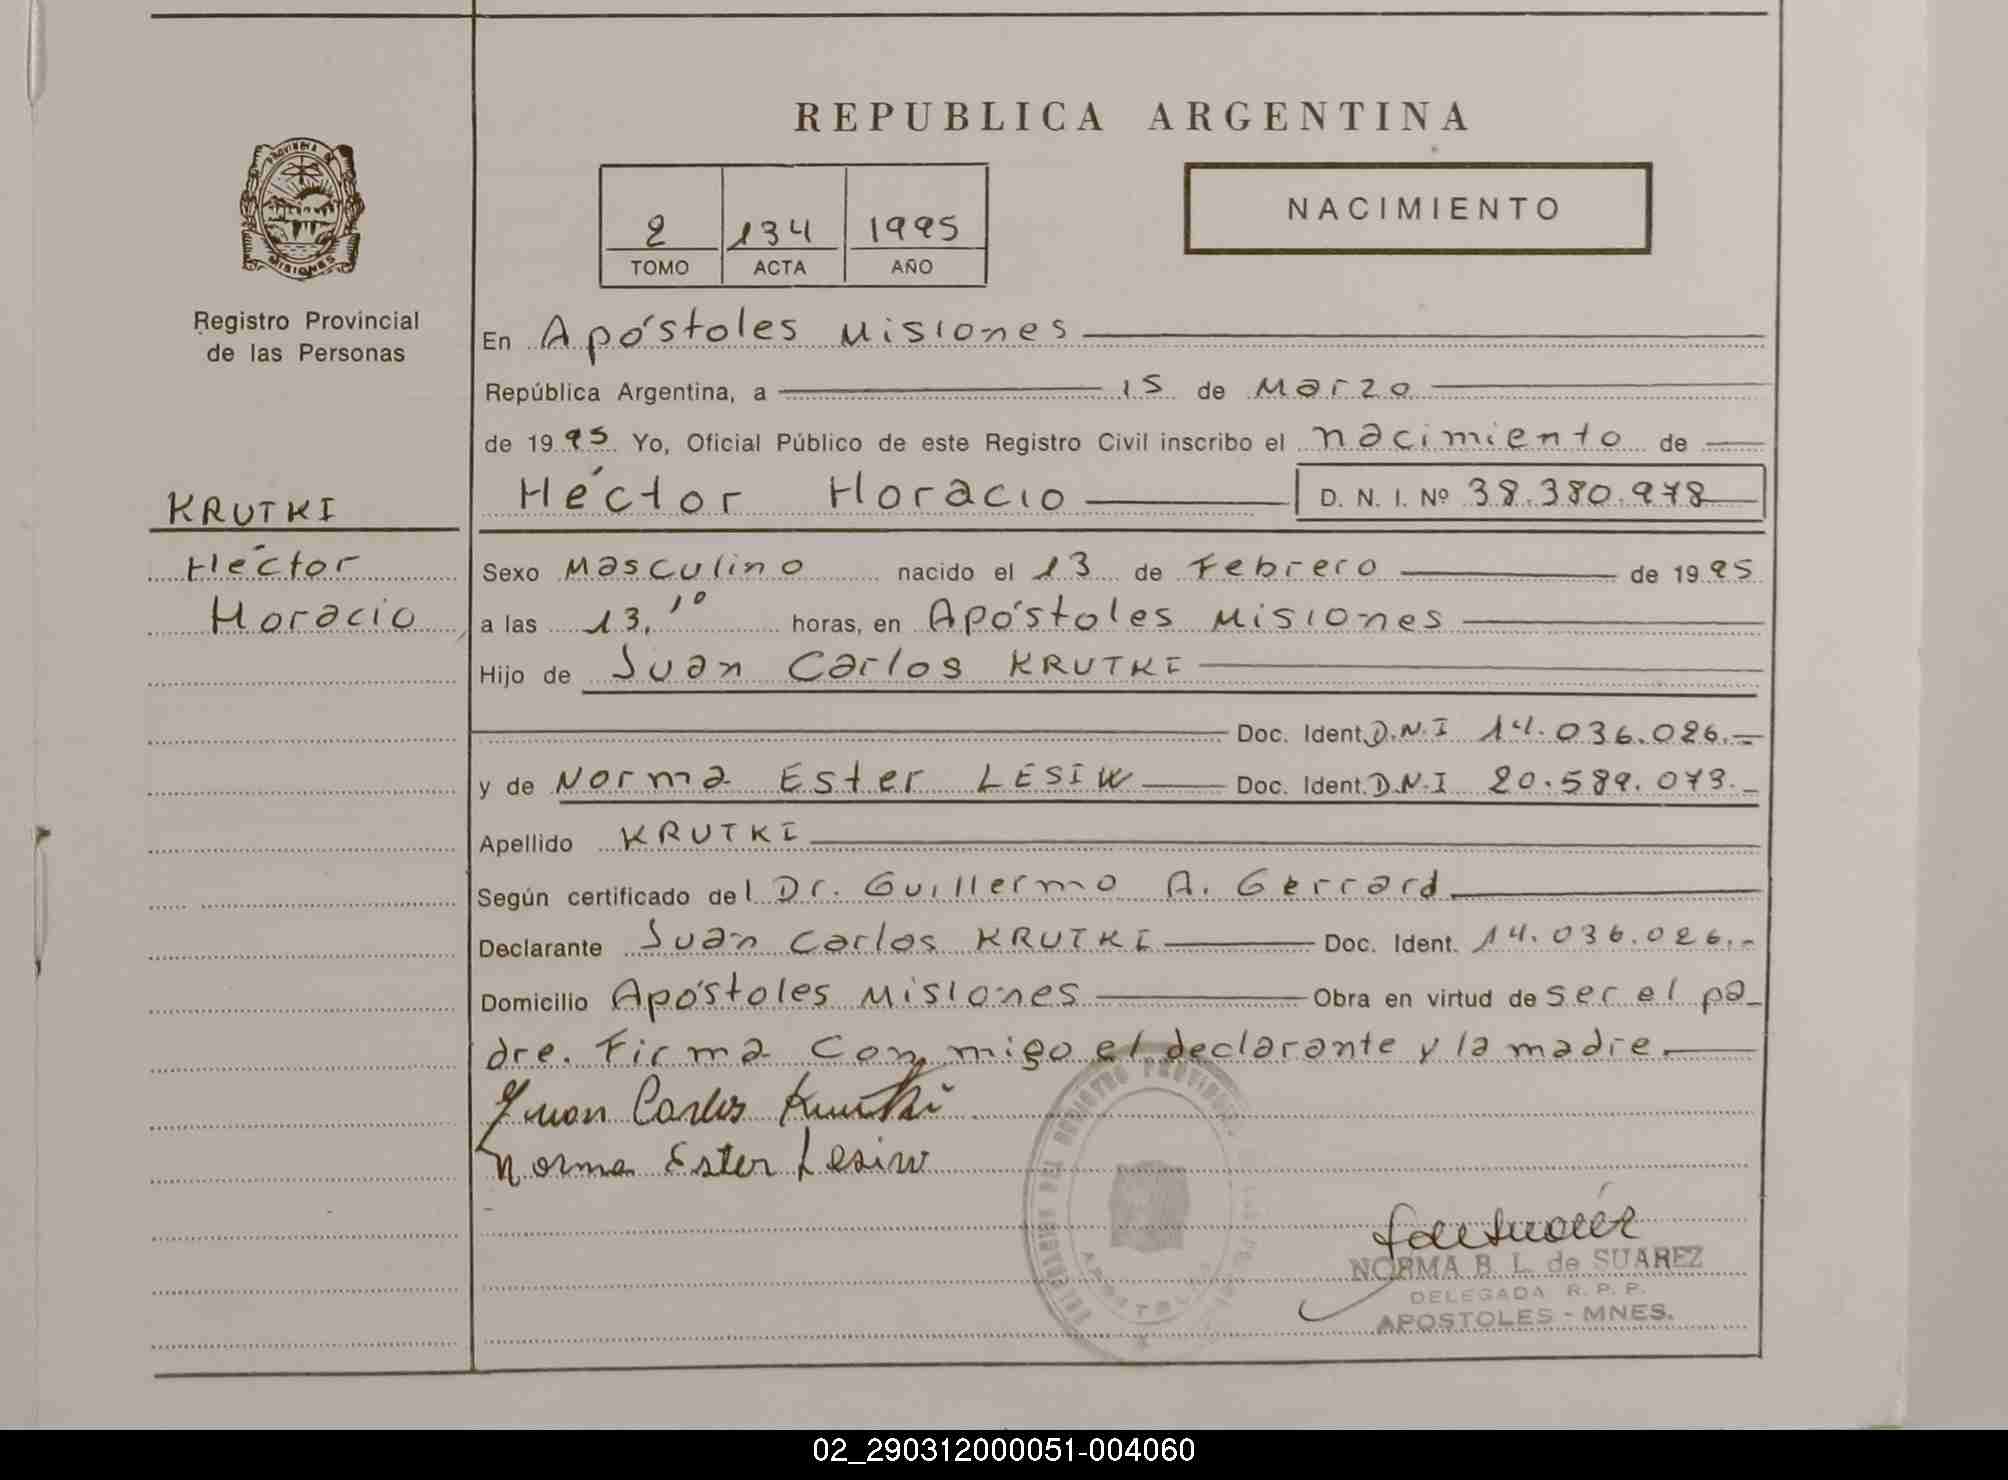 REPUBLICA ARGENTINA
PROVINCIA DE
MISIONES
Registro Provincial
de las Personas
2 134 1995
TOMO ACTA AÑO
NACIMIENTO
En Apóstoles Misiones
República Argentina, a 15 de Marzo
de 1995 Yo, Oficial Público de este Registro Civil inscribo el nacimiento de
Héctor Horacio D. N. I. Nº 38.380.978
KRUTKI
Héctor
Horacio
Sexo Masculino nacido el 13 de Febrero de 1995
a las 13,10 horas, en Apóstoles Misiones
Hijo de Juan Carlos KRUTKI
Doc. Ident. D.N.I 14.036.026.-
y de Norma Ester LESIW Doc. Ident. D.N.I 20.589.073.-
Apellido KRUTKI
Según certificado del Dr. Guillermo A. Gerrard
Declarante Juan Carlos KRUTKI Doc. Ident. 14.036.026.-
Domicilio Apóstoles Misiones Obra en virtud de ser el pa-
dre. Firma conmigo el declarante y la madre.
Juan Carlos Krutki
Norma Ester Lesiw
DELEGACION DEL REGISTRO PROVINCIAL
APOSTOLES
NORMA B. L. de SUAREZ
DELEGADA R. P. P.
APOSTOLES - MNES.
02_290312000051-004060